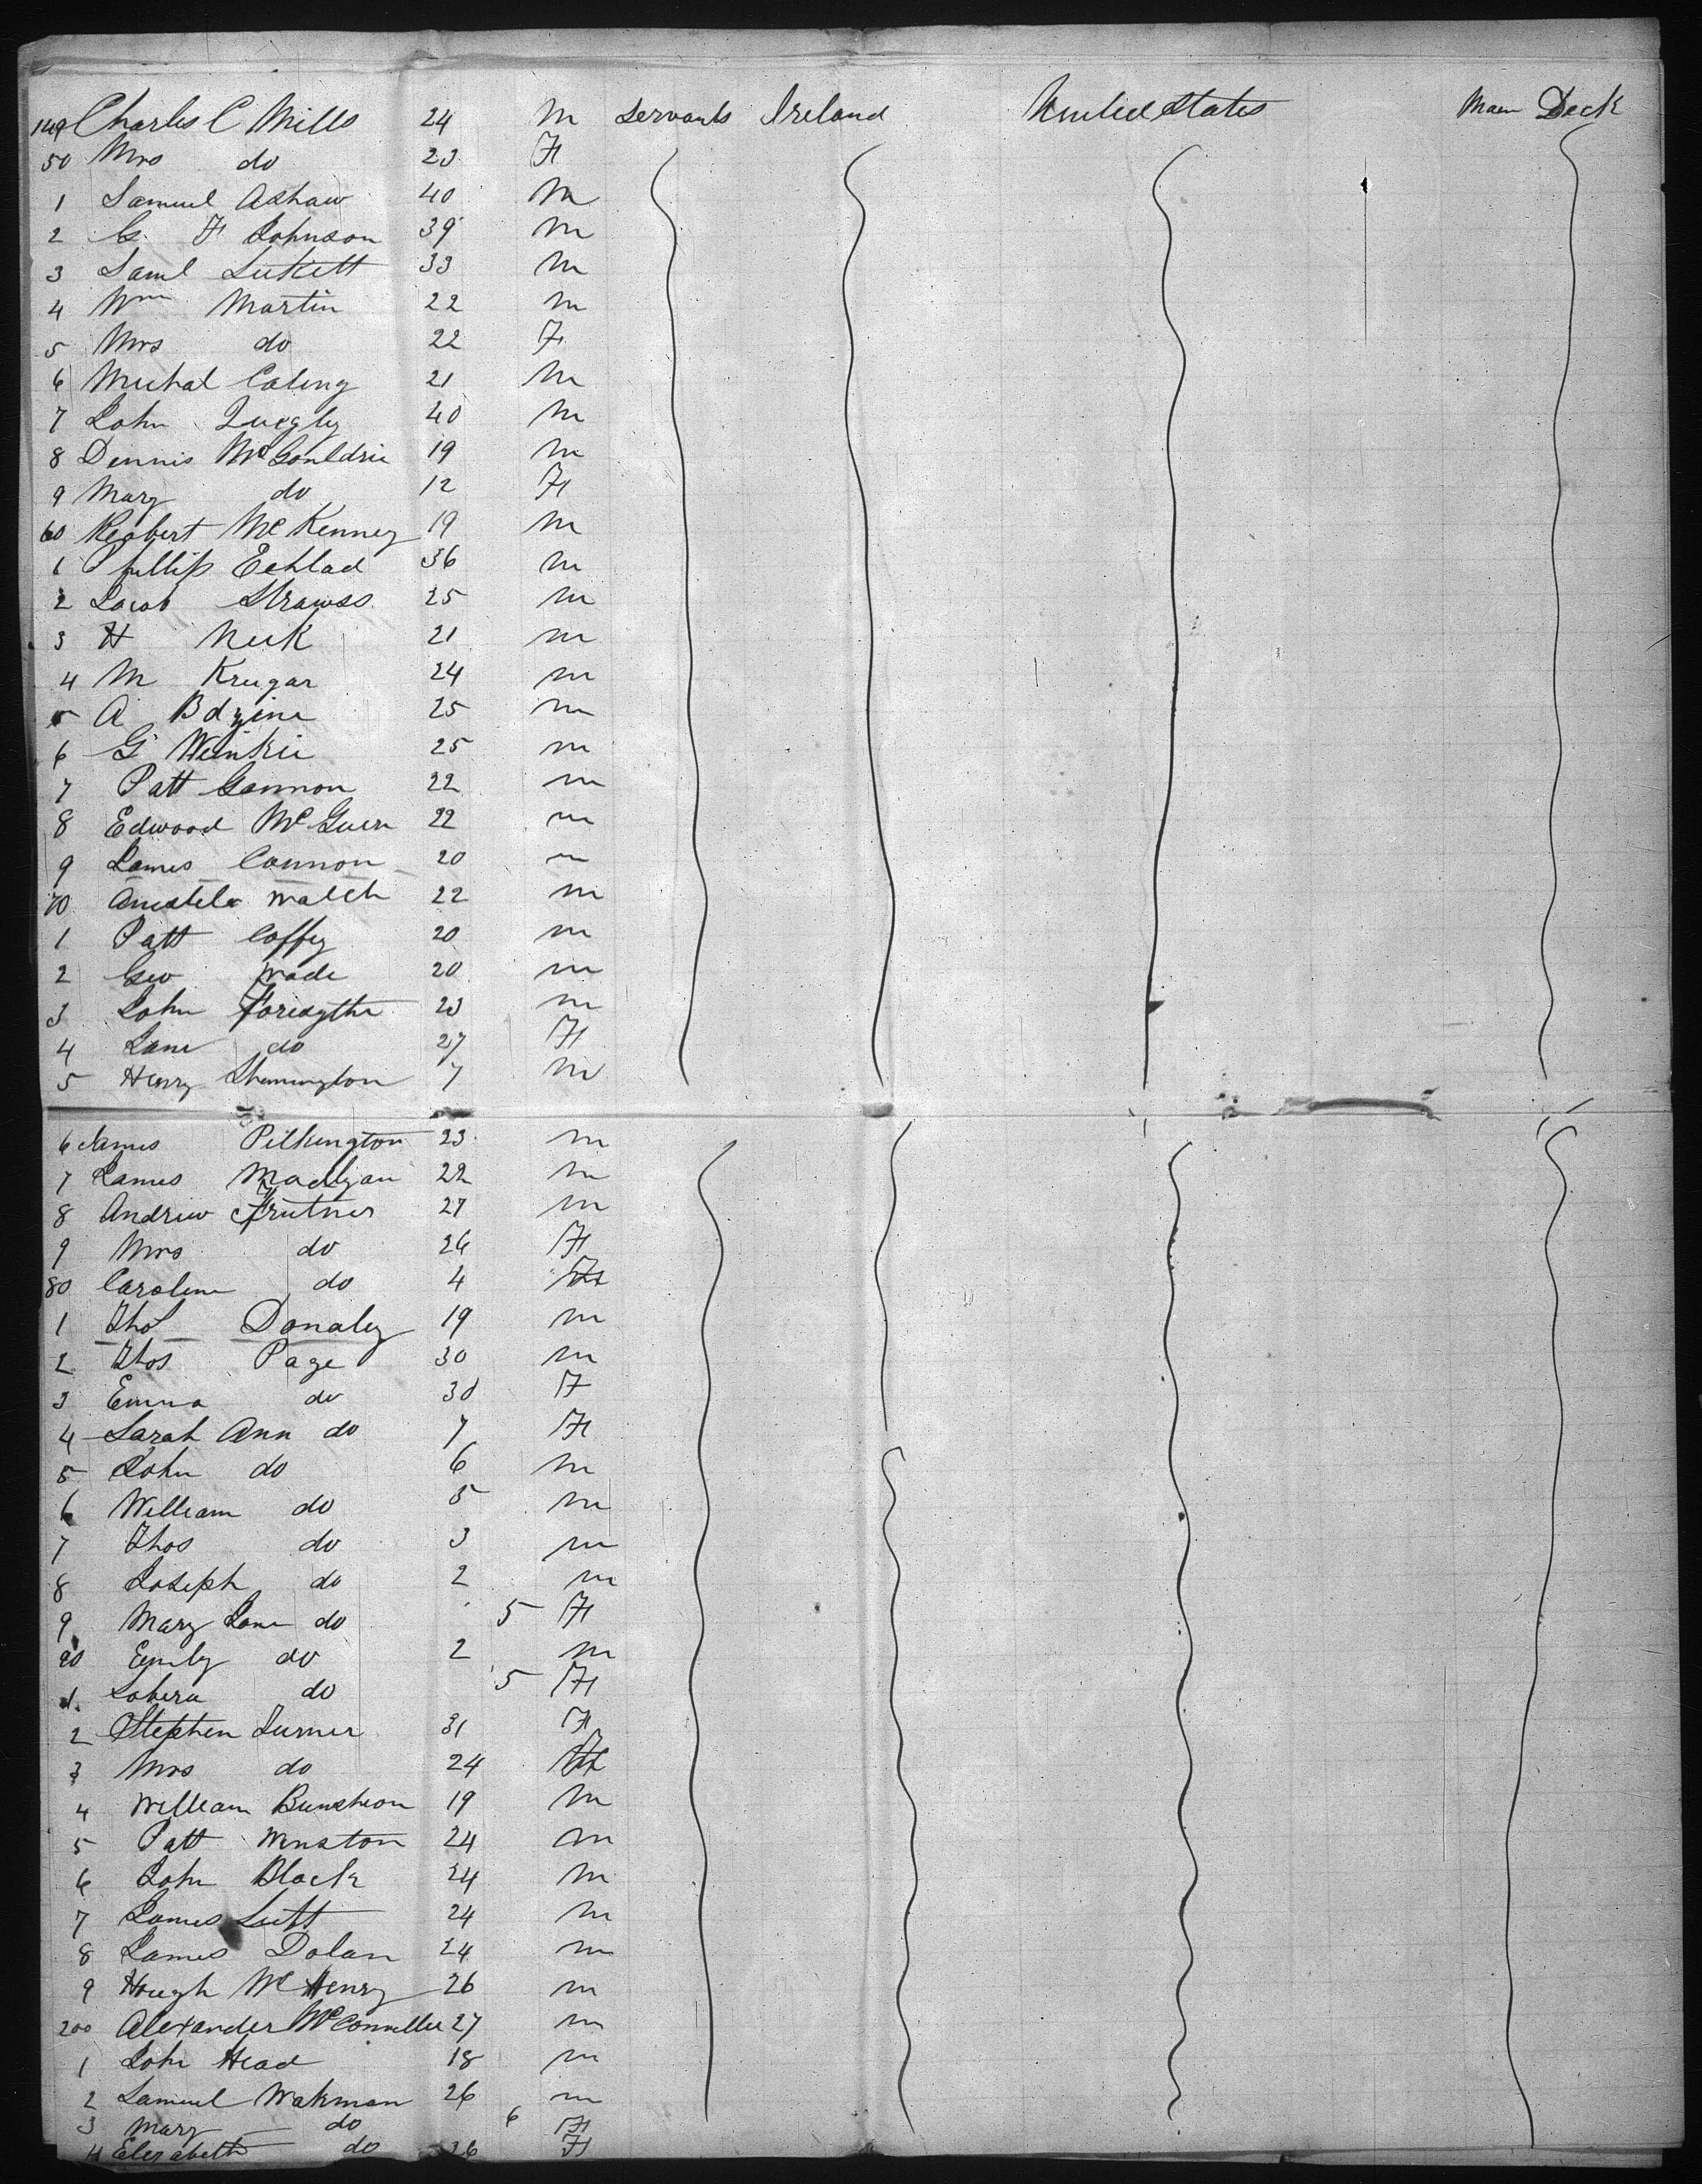 149 Charles C Mills 24 M Servants Ireland United States Main Deck
50 Mrs do 23 F
1 Samuel Ashaw 40 M
2 G. F Johnson 39 M
3 Saml Lukett 33 M
4 Wm Martin 22 M
5 Mrs do 22 F
6 Michal 21 M
7 John Quegly 40 M
8 Dennis McGouldric 19 M
9 Mary do 12 F
60 Robert McKenney 19 M
1 Phillip Echlad 36 M
2 Jacob Strawss 25 M
3 H Neek 21 M
4 M Krugar 24 M
5 A 25 M
6 G Weinkie 25 M
7 Patt Gannon 22 M
8 Edwood McGuern 22 M
9 James Cannon 20 M
70 walch 22 M
1 Patt Coffey 20 M
2 Geo Wade 20 M
3 John Foresythe 23 M
4 Jane do 27 F
5 Henry Shennington 7 M
6 James Pilkington 23 M
7 James Madigan 22 M
8 Andrew Frutner 27 M
9 Mrs do 26 F
80 Caroline do 4 F
1 Thos Donaley 19 M
2 Thos Page 30 M
3 Emma do 30 F
4 Sarah Ann do 7 F
5 John do 6 M
6 William do 5 M
7 Thos do 3 M
8 Joseph do 2 M
9 Mary Jane do 5 F
90 Emily do 2 M
1 do 5 F
2 Stephen Turner 31 F
3 Mrs do 24
4 William Buncheon 19 M
5 Patt Winston 24 M
6 John Black 24 M
7 James Lutt 24 M
8 James Dolan 24 M
9 Hough McHenry 26 M
200 Alexander McConnellee 27 M
1 John Head 18 M
2 Samuel Wakman 26 M
3 Mary do 6 F
4 Elizabeth do 26 F